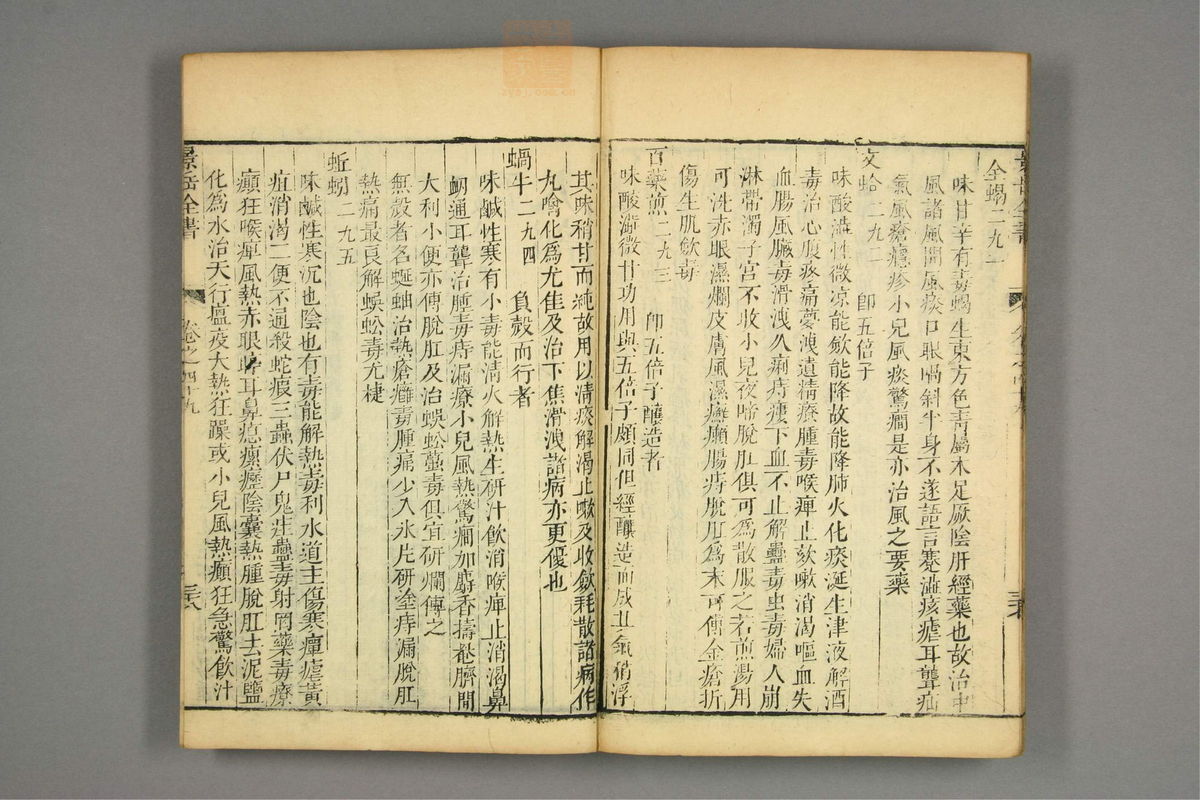 全蝎二九一
味甘辛有毒蝎生東方色青屬木足厥陰肝經藥也故治中
風諸風開風痰口眼喎斜半身不遂語言蹇澁痎瘧耳聾疝
氣風瘡癮疹小兒風痰驚癎是亦治風之要藥
文蛤二九二 卽五倍子
味酸澁性微凉能歛能降故能降肺火化痰涎生津液解酒
毒治心腹疼痛夢洩遺精療腫毒喉痺止欬嗽消渴嘔血失
血腸風臟毒滑洩久痢痔瘻下血不止解蠱毒虫毒婦人崩
淋帶濁子宮不收小兒夜啼脫肛俱可為散服之若煎湯用
可洗赤眼濕爛皮膚風濕癬癩腸痔脫肛爲末可傅金瘡折
傷生肌歛毒
百藥煎二九三 卽五倍子釀造者
味酸澁微甘功用與五倍子頗同但經釀造而成其氣稍浮
其味稍甘而純故用以清痰解渴止嗽及收歛耗散諸病作
九噙化爲尤佳及治下焦滑洩諸病亦更優也
蝸牛二九四 負殼而行者
味鹹性寒有小毒能清火解熱生研汁飲消喉痺止消渴鼻
衂通耳聾治腫毒痔漏療小兒風熱驚癎加麝香擣罨臍間
大利小便亦傅脫肛及治蜈蚣蠆毒俱宜研爛傅之
無殼者名蜒蚰治熱瘡癬毒腫痛少入氷片研塗痔漏脫肛
熱痛最良解蜈蚣毒尤㨗
蚯蚓二九五
味鹹性寒沉也陰也有毒能解熱毒利水道主傷寒癉瘧黃
疸消渴二便不通殺蛇瘕三蟲伏尸鬼疰蠱毒射罔藥毒療
癲狂喉痺風熱赤眼聤耳鼻瘜瘰癧陰囊熱腫脫肛去泥鹽
化爲水治天行瘟疫大熱狂躁或小兒風熱癲狂急驚飲汁
景岳全書 卷之四十九